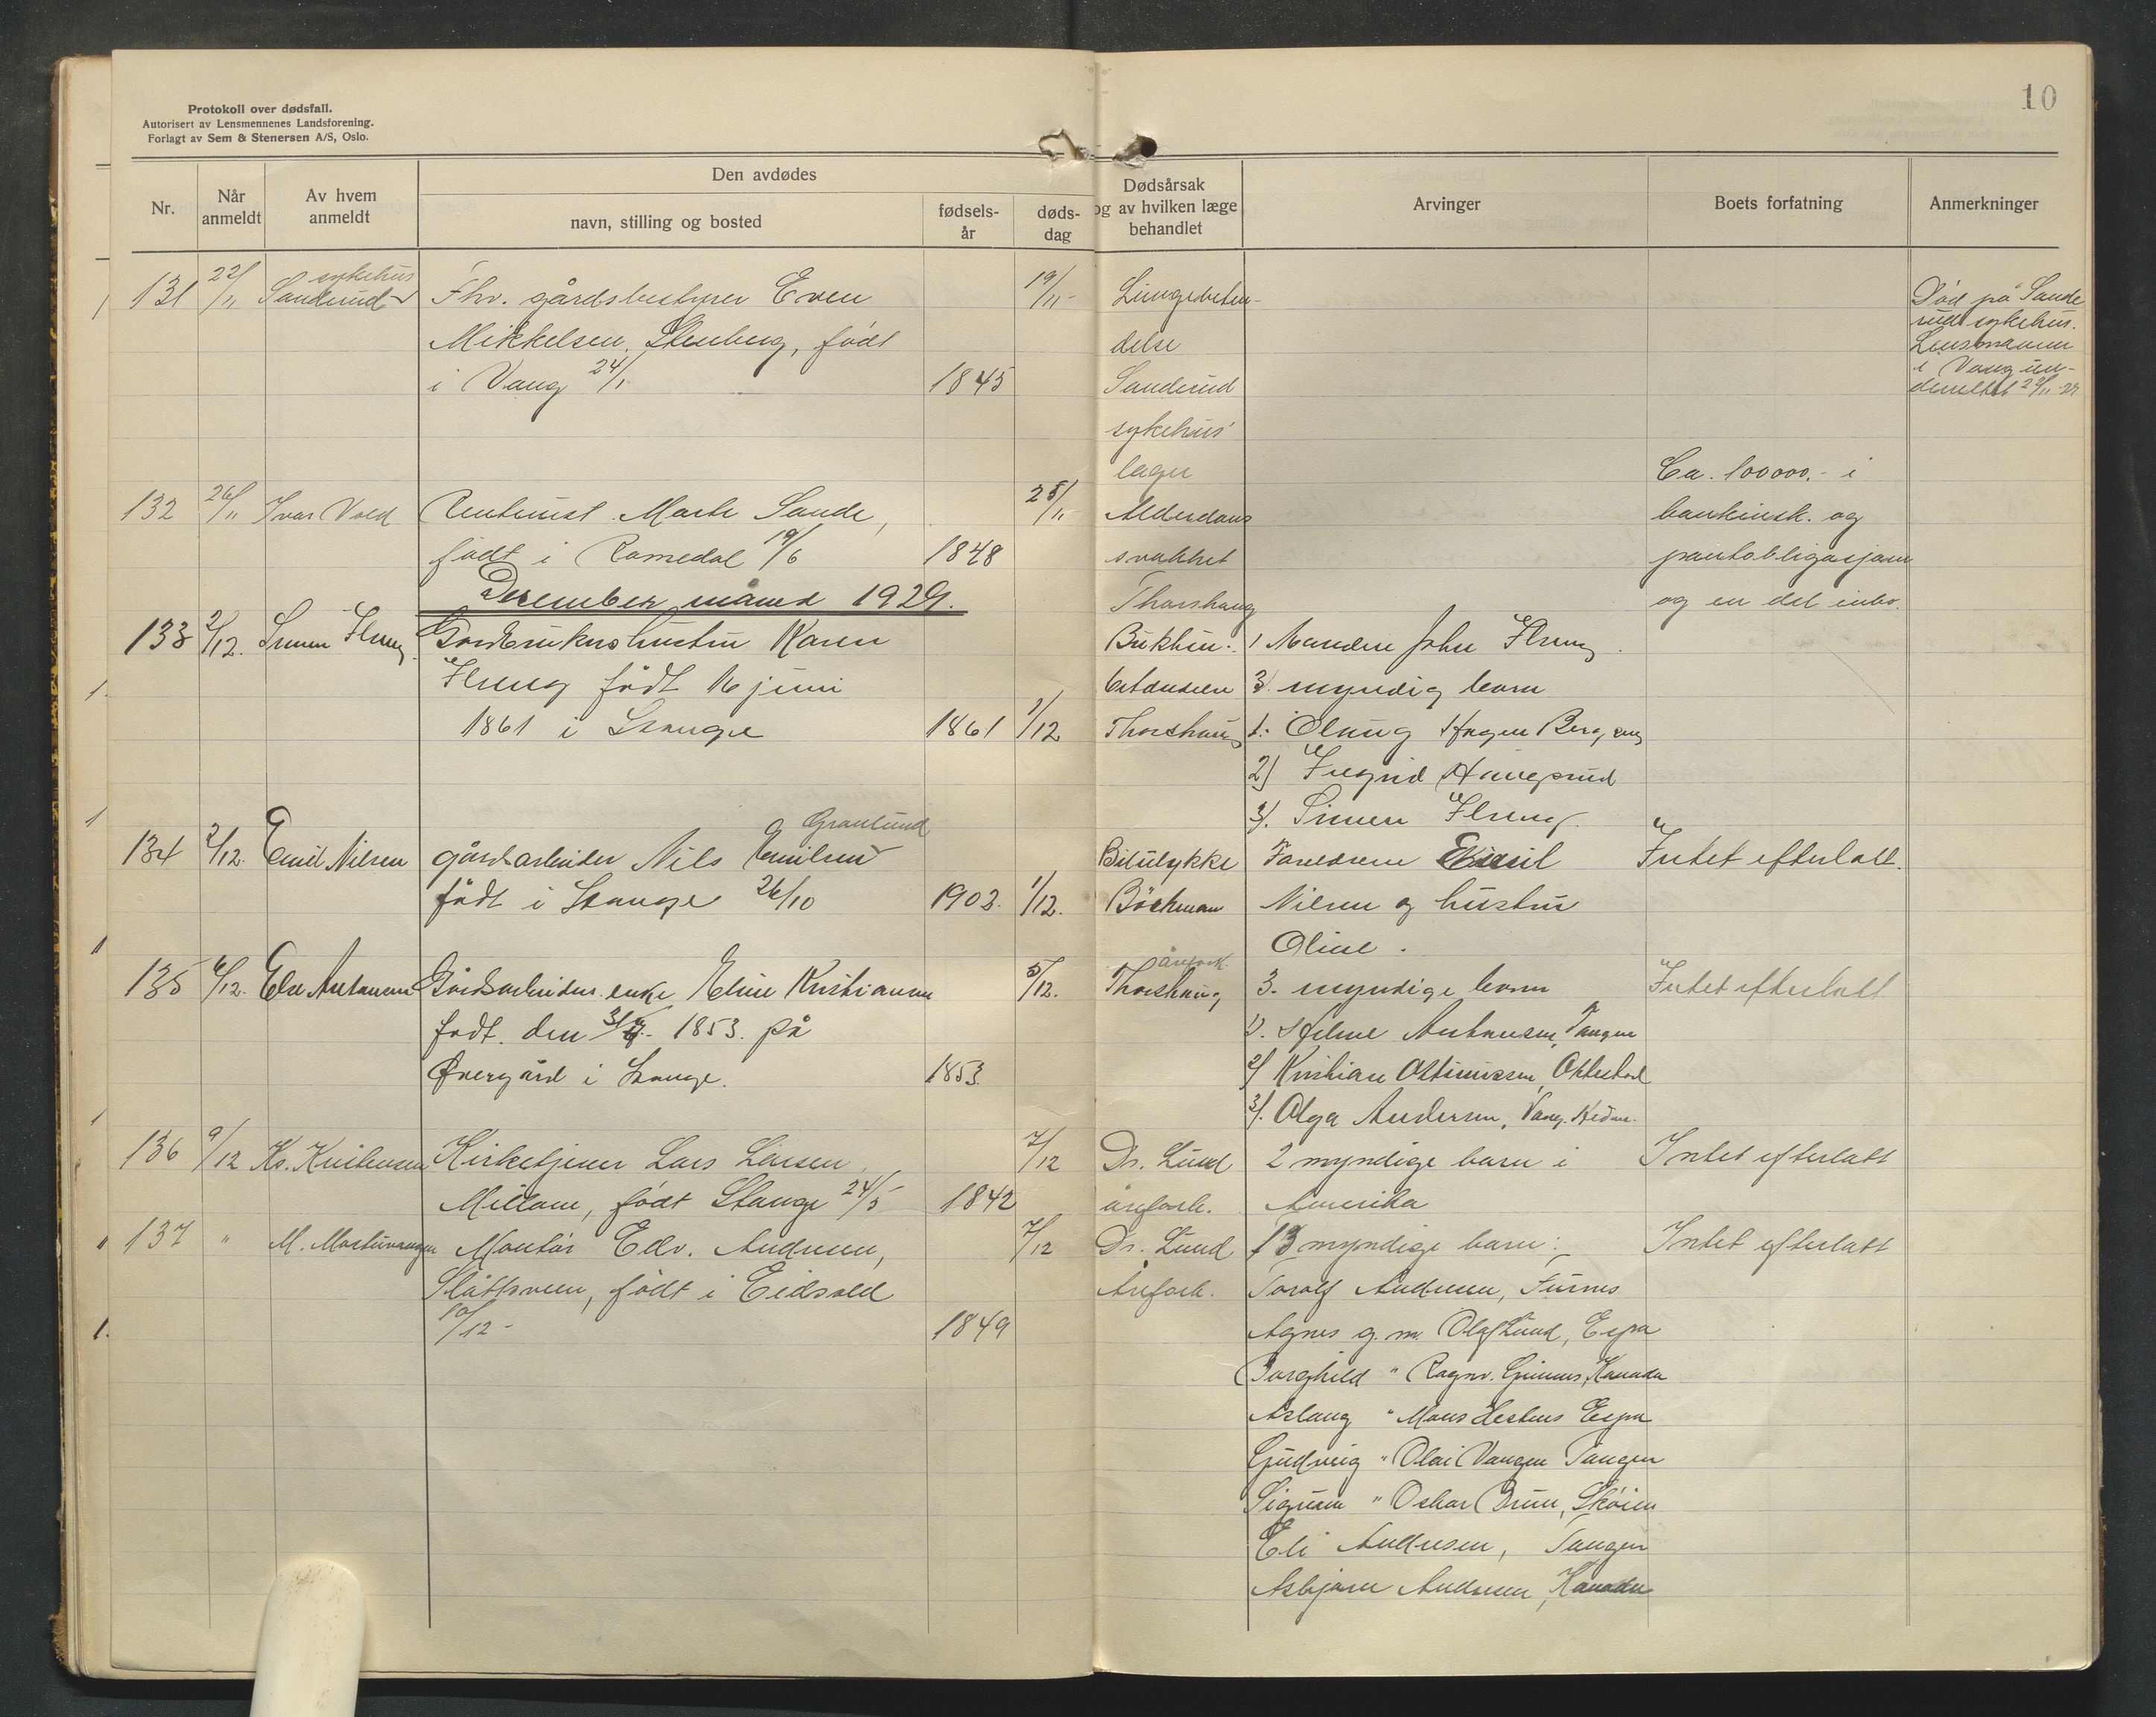 10
Protokoll over dødsfall.
Autorisert av Lensmennenes Landsforening.
Forlagt av Sem & Stenersen A/S, Oslo.
Nr.
Når anmeldt
Av hvem anmeldt
Den avdødes
navn, stilling og bosted
fødsels-år
døds-dag
Dødsårsak og av hvilken læge behandlet
Arvinger
Boets forfatning
Anmerkninger
131 22/11 Sanderud sykehus Fhv. gårdsbestyrer Even 19/11 Lungebeten-
Mikkelsen Stenberg, født delse
i Vang 24/1 1845 Sanderud
sykehus'
læger
Død på Sande
rud sykehus.
Lensmannen
i Vang un-
derrettet 22/11-29
132 26/11 Ivar Vold Rentenist Marte Sande, 25/11 Alderdoms
født i Romedal 19/6 1848 svakhet
Thorshaug
Ca. 100000.- i
bankinsk. og
pantobligasjoner
og en del inbo.
Desember måned 1929.
133 2/12. Simen Gårdbrukerhustru Karen
født 16 juni
1861 i Stange 1861 1/12 Thorshaug
1 Manden John
3 myndig barn
1. Olaug
2) Ingrid
3). Simen
134 2/12. Emil Nilsen gårdsarbeider Nils Emilsen Granlund Bilulykke Foreldrene Emil Intet efterlatt.
født i Stange 26/10 1903. 1/12. Böckman Nilsen og hustru
Oline.
135 6/12. Else Antonsen Gårdsarbeider enke Eline Kristiansen 5/12. Thorshaug årefork. 3. myndige barn Intet efterlatt
født. den 1853. på 1). Helene Antonsen, Tangen
Øvergård i Stange. 1853. 2) Kristian Ottinussen, Ottestad
3). Olga Andersen, Vang. Hedm.
136 9/12 Kr. Kristensen Kirketjener Lars Larsen 7/12 Dr. Lund 2 myndige barn i Intet efterlatt
født Stange 24/5 1842 åreforh. Amerika
137 " M. Mortenvangen Montör Edv. Andresen, 7/12 Dr. Lund 13 myndige barn: Intet efterlatt
Slåttsveen, født i Eidsvold Åreforh. Toralf Andresen, Furnes
10/12- 1849 Agnes g. m. Olaf Lund, Espa
Borghild " Ragnv. Kanada
Aslaug " Mons Espa
Gudveig " Olai Vangen Tangen
Sigrunn " Oskar Brun, Skøien
Eli Andresen, Tangen
Asbjørn Andresen, Kanada